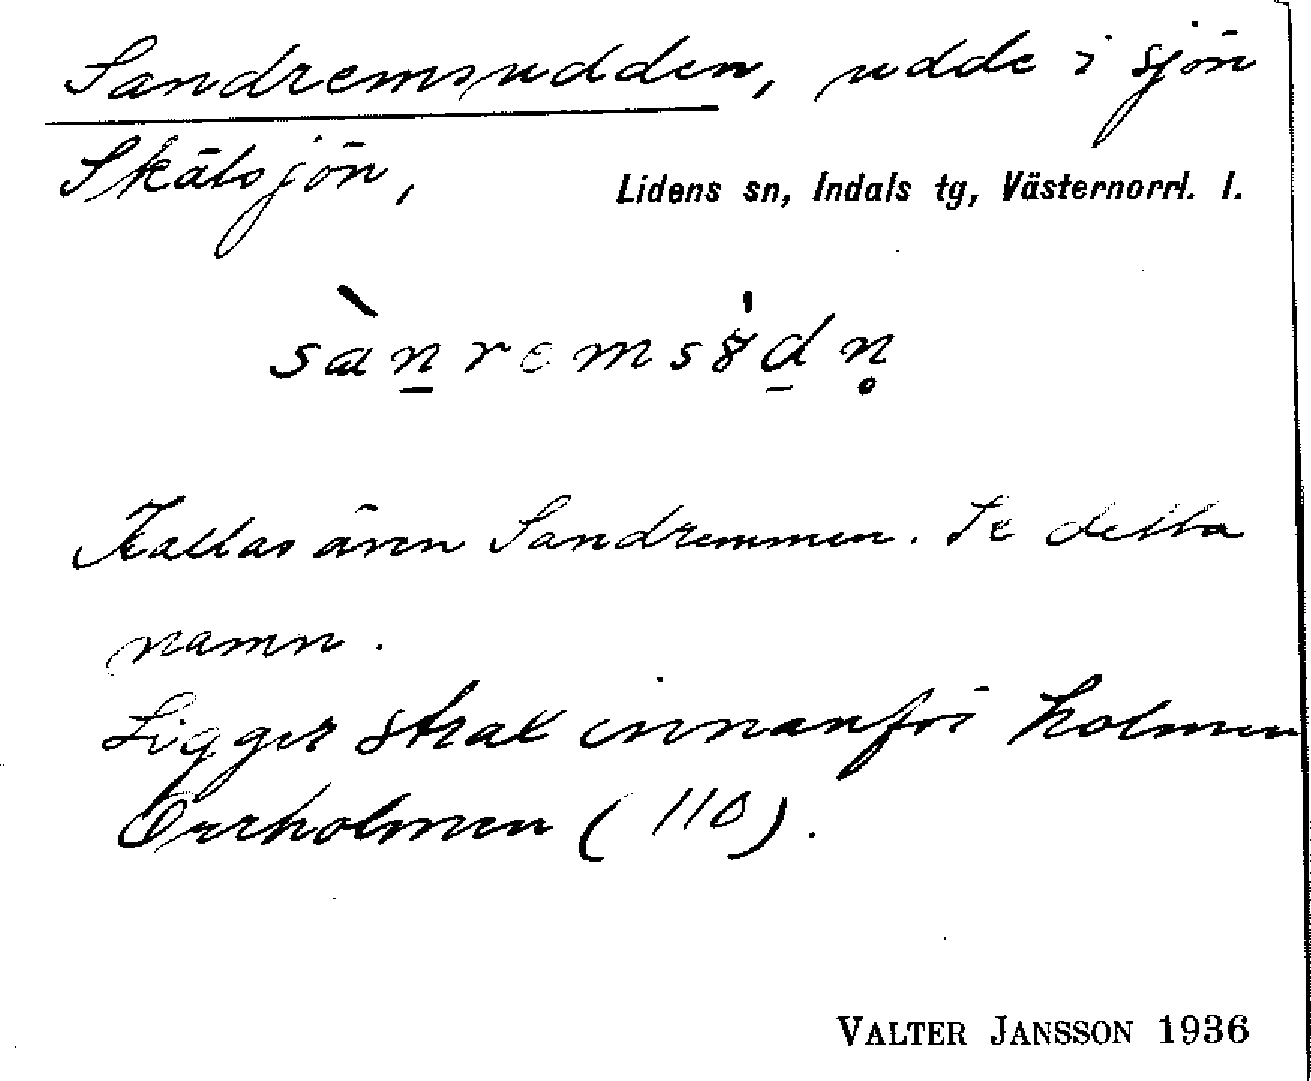 Sandremsudden, udde i sjön
Skälsjön,
Lidens sn, Indals tg, Västernorrl. l.
sànremsö̍dn̥
Kallas även Sandremmen. Se detta
namn.
Ligger strax innanför holmen
Orrholmen (110).
VALTER JANSSON 1936